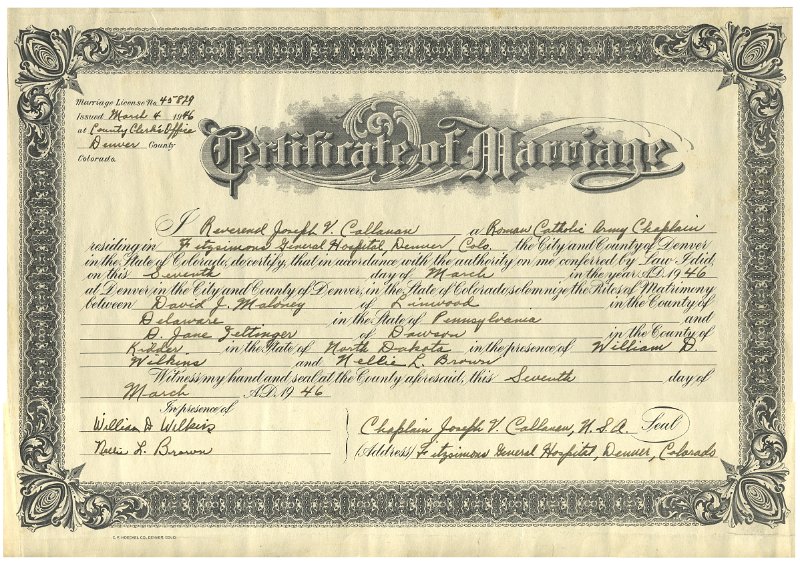 Marriage License No. 45879
Issued March 4 1946
at County Clerk's Office
Denver County
Colorado.
Certificate of Marriage
I Reverend Joseph V. Callanan a Roman Catholic Army Chaplain
residing in Fitzsimons General Hospital, Denver, Colo. the City and County of Denver
in the State of Colorado, do certify, that in accordance with the authority on me conferred by Law I did,
on this Seventh day of March in the year A.D. 1946
at Denver, in the City and County of Denver, in the State of Colorado, solemnize the Rites of Matrimony
between David J. Maloney of Linwood in the County of
Delaware in the State of Pennsylvania and
D. Jane Zeltinger of Dawson in the County of
Kidder in the State of North Dakota in the presence of William D.
Wilkins and Nellie L. Brown
Witness my hand and seal at the County aforesaid, this Seventh day of
March A.D. 1946
In presence of
William D Wilkins
Nellie L. Brown
Chaplain Joseph V. Callanan, U.S.A. Seal
(Address) Fitzsimons General Hospital, Denver, Colorado
C.F. HOECKEL CO., DENVER, COLO.